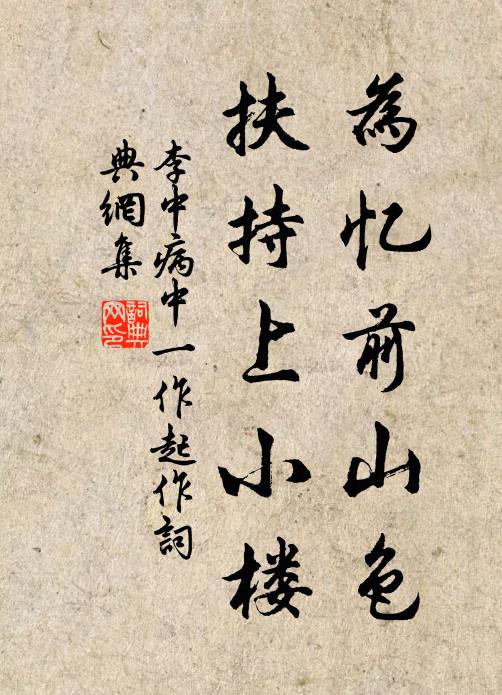 為忆前山色
扶持上小楼
李中病中一作起作詞
典網集
詞典
网印